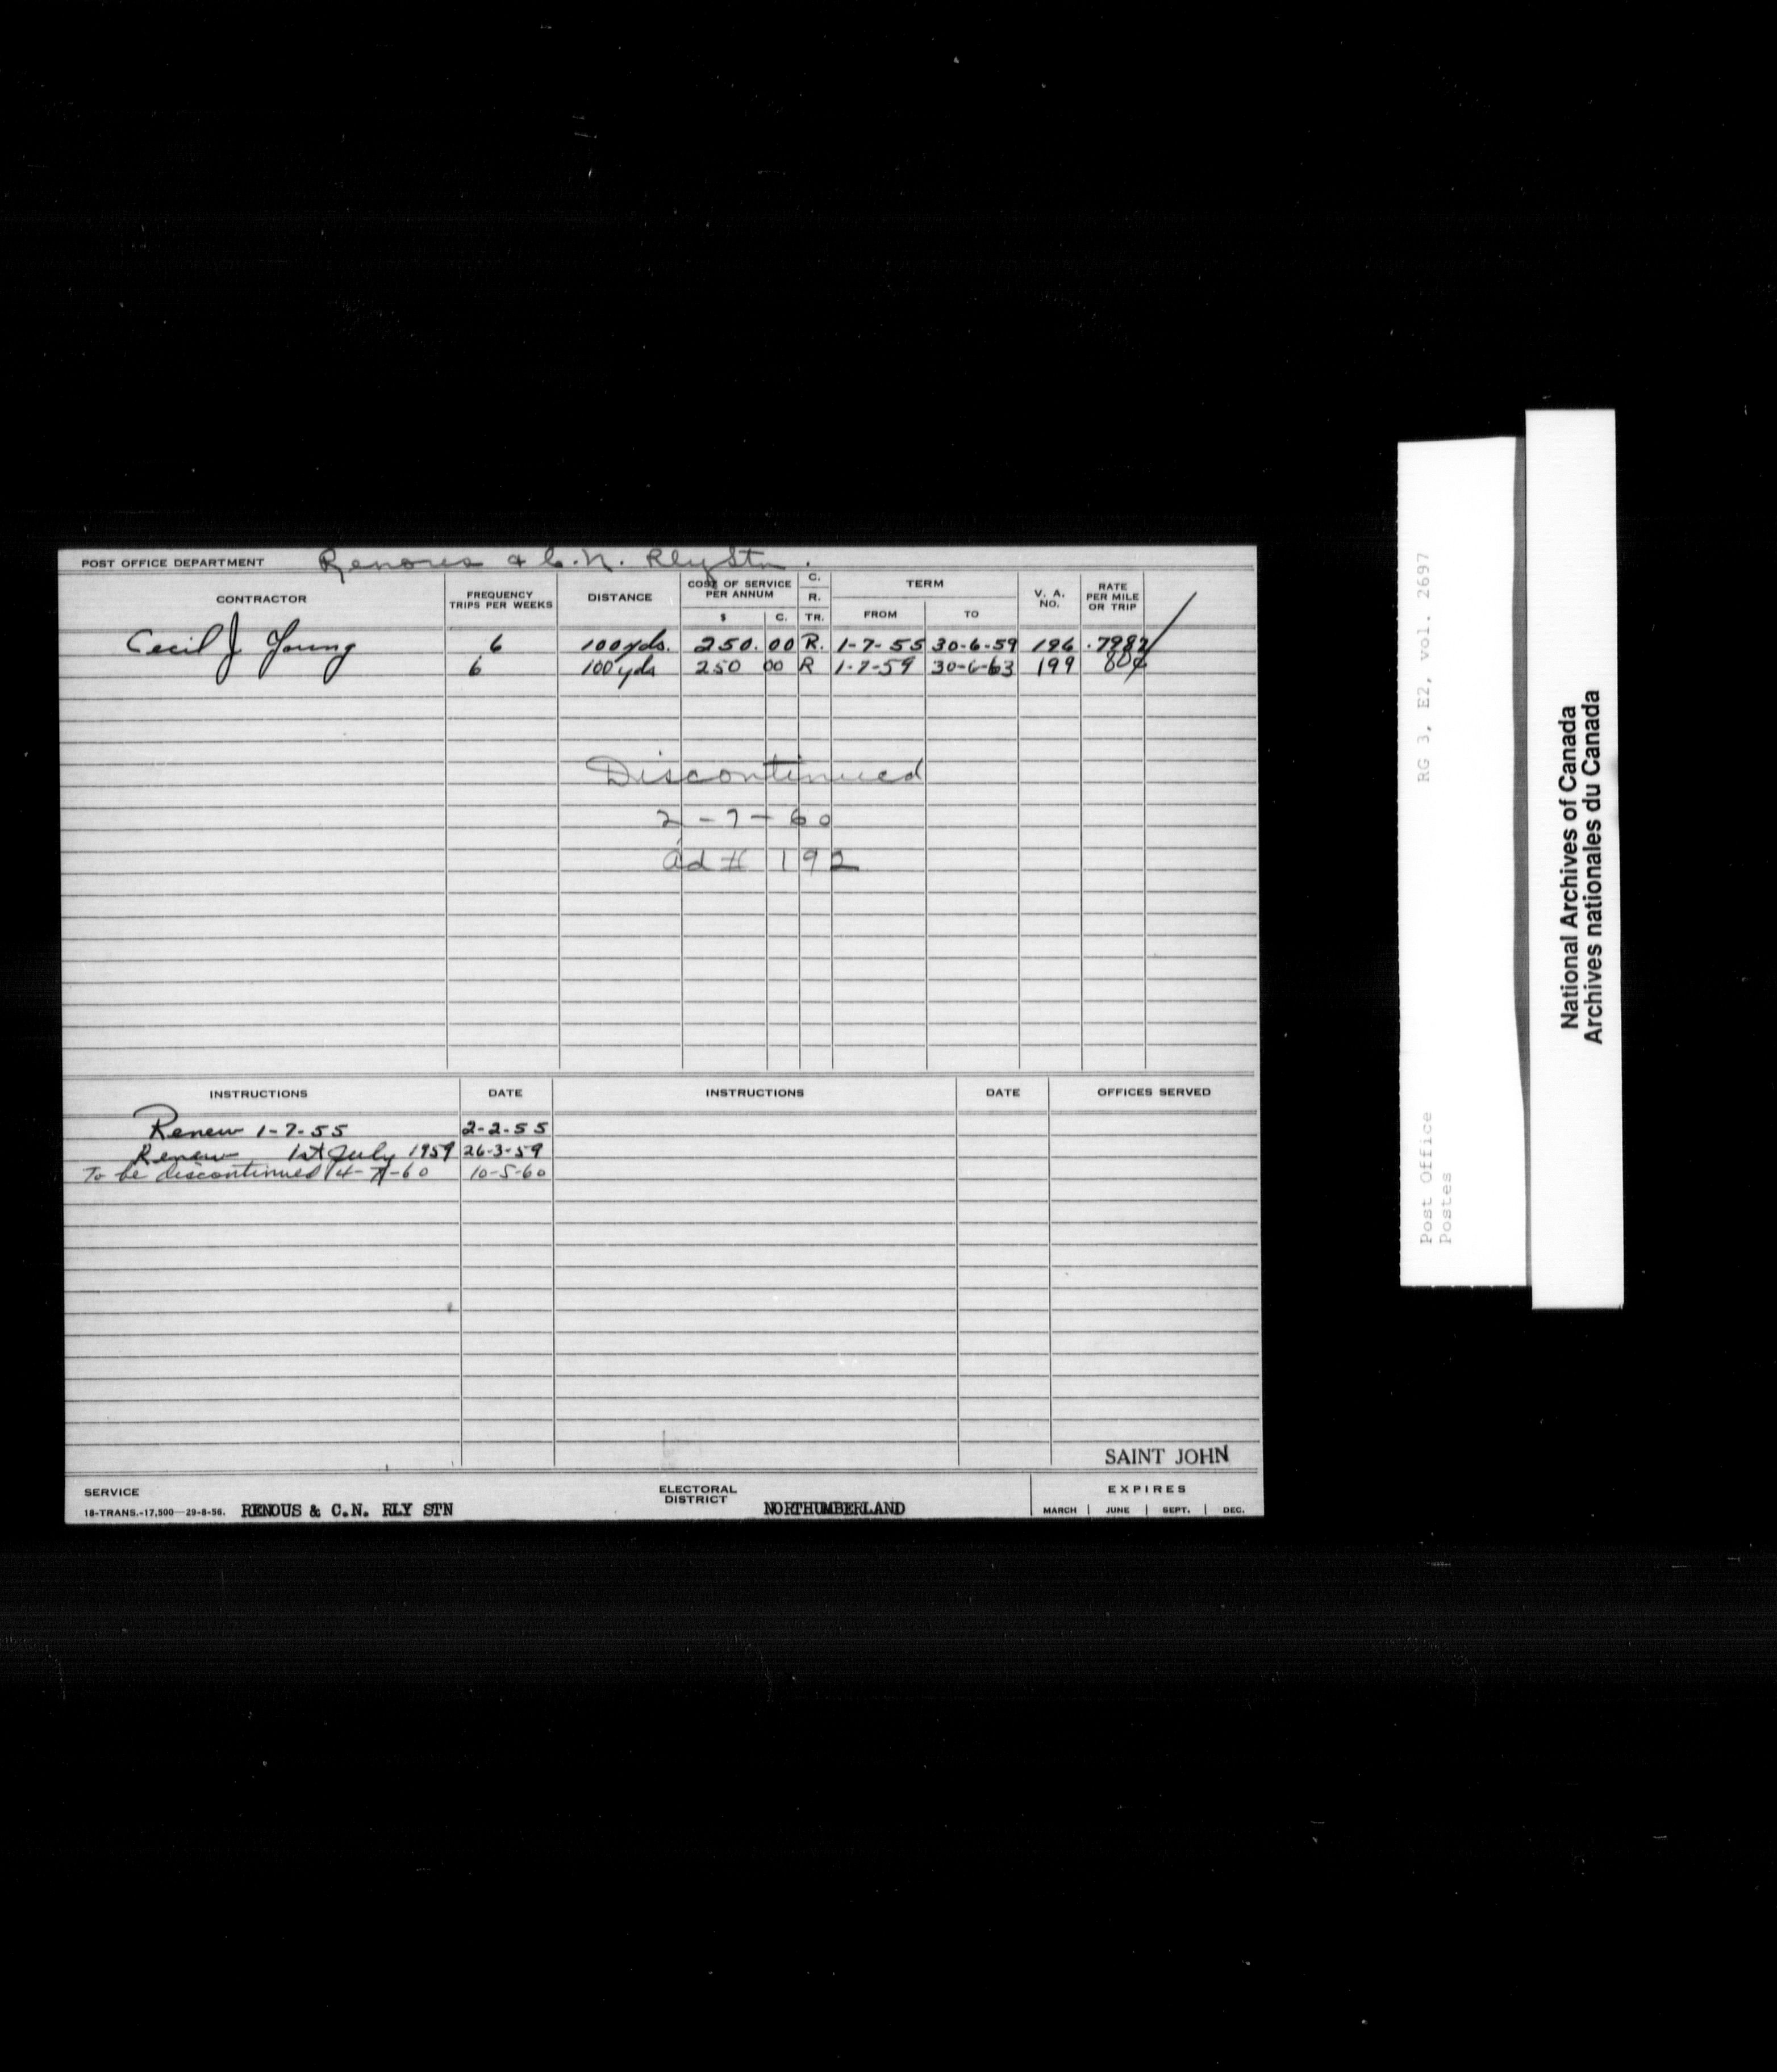 POST OFFICE DEPARTMENT Renous & C.N. Rly Stn.
CONTRACTOR FREQUENCY TRIPS PER WEEKS DISTANCE COST OF SERVICE PER ANNUM $ C. C. R. TR. TERM FROM TO V. A. NO. RATE PER MILE OR TRIP
Cecil J Young 6 100 yds. 250.00 R. 1-7-55 30-6-59 196 .7982
6 100 yds 250 00 R 1-7-59 30-6-63 199 80¢
Discontinued
2-7-60
Ad # 192
INSTRUCTIONS DATE INSTRUCTIONS DATE OFFICES SERVED
Renew 1-7-55 2-2-55
Renew 1st July 1959 26-3-59
To be discontinued 4-7-60 10-5-60
SAINT JOHN
SERVICE ELECTORAL DISTRICT EXPIRES
18-TRANS.-17,500-29-8-56. RENOUS & C.N. RLY STN NORTHUMBERLAND MARCH | JUNE | SEPT. | DEC.
RG 3, E2, vol. 2697
Post Office
Postes
National Archives of Canada
Archives nationales du Canada